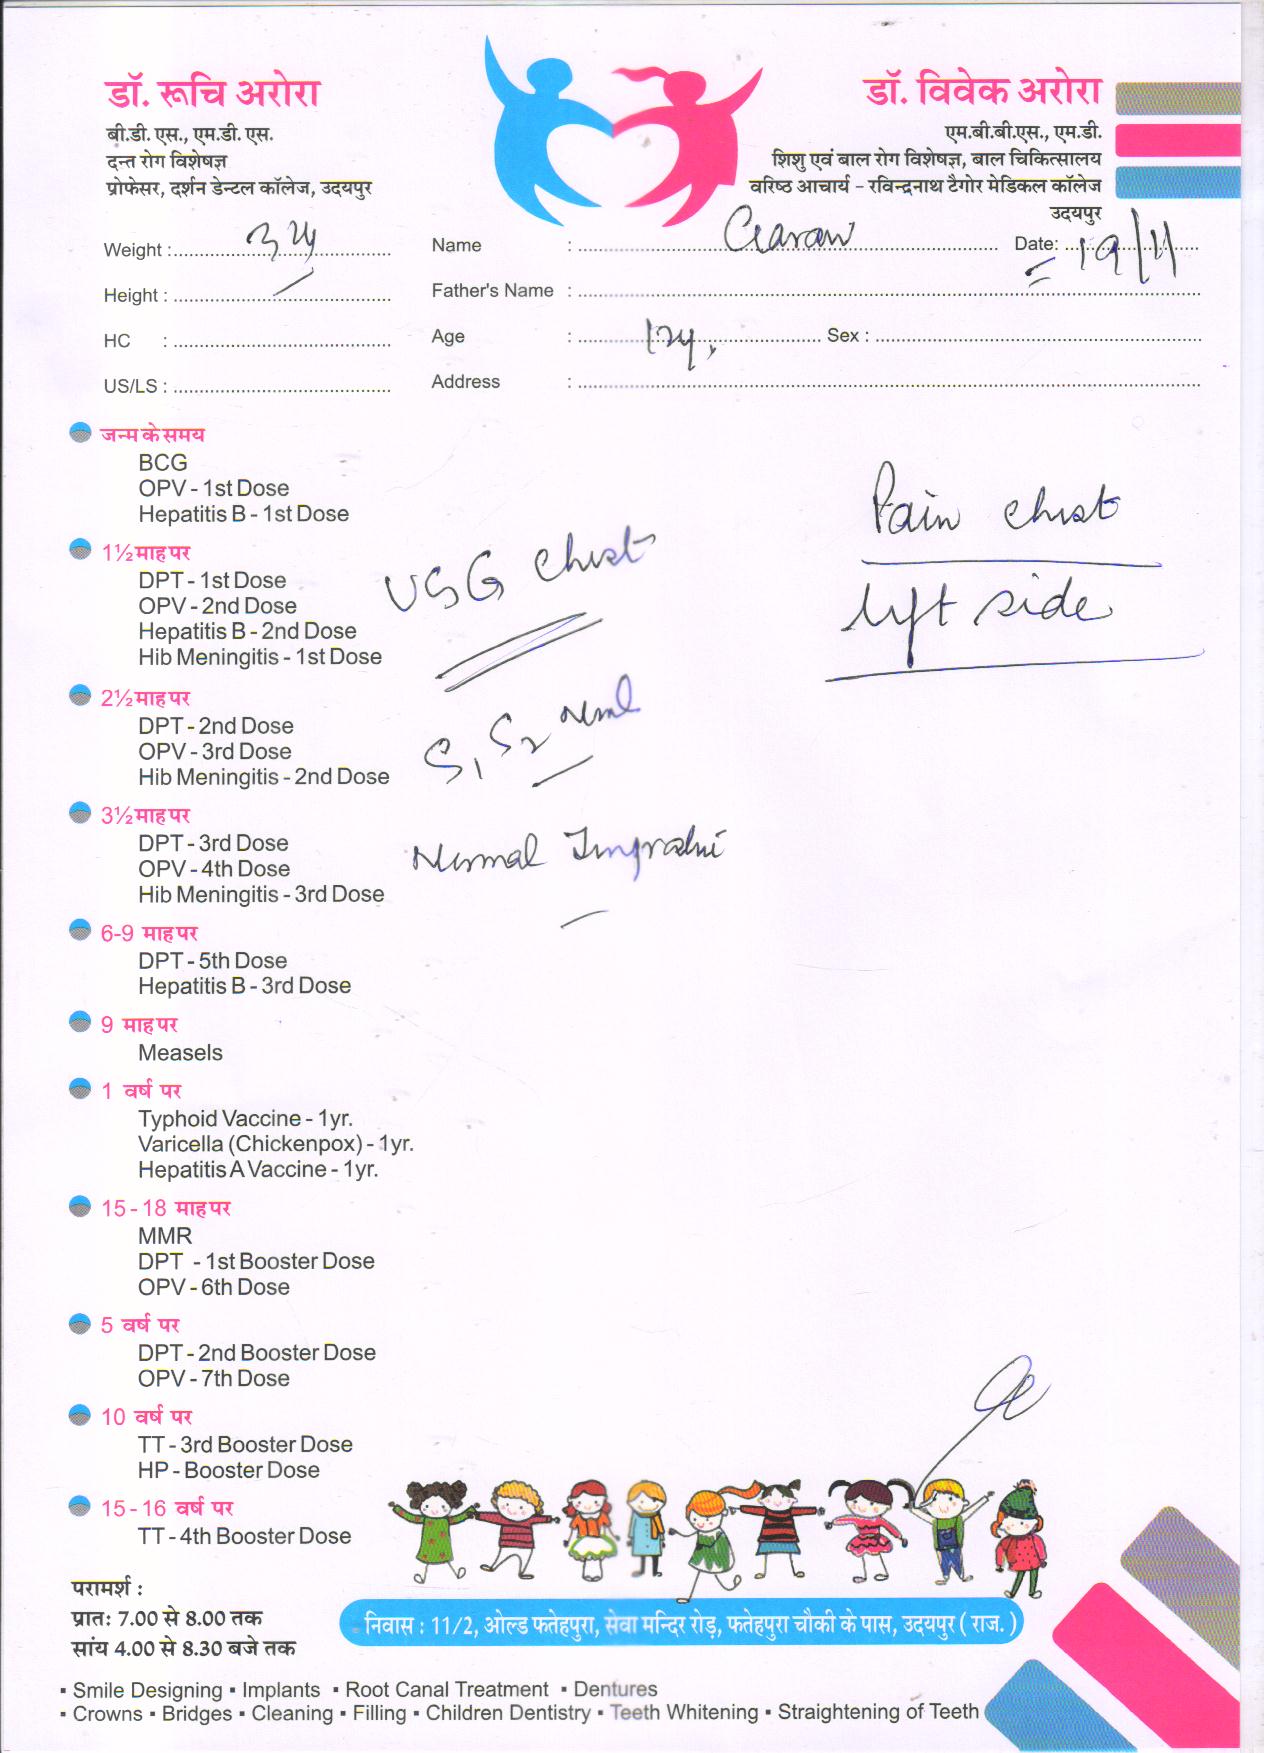 डॉ. रूचि अरोरा
बी.डी. एस., एम.डी. एस.
दन्त रोग विशेषज्ञ
प्रोफेसर, दर्शन डेन्टल कॉलेज, उदयपुर
डॉ. विवेक अरोरा
एम.बी.बी.एस., एम.डी.
शिशु एवं बाल रोग विशेषज्ञ, बाल चिकित्सालय
वरिष्ठ आचार्य - रविन्द्रनाथ टैगोर मेडिकल कॉलेज
उदयपुर
Weight : Name : Date: 19/11
Height : Father's Name :
HC : Age : 12y. Sex :
US/LS : Address :
Pain chest
left side
जन्म के समय
BCG
OPV - 1st Dose
Hepatitis B - 1st Dose
1½ माह पर
DPT - 1st Dose
OPV - 2nd Dose
Hepatitis B - 2nd Dose
Hib Meningitis - 1st Dose
USG chest
2½ माह पर
DPT - 2nd Dose
OPV - 3rd Dose
Hib Meningitis - 2nd Dose
S1 S2
3½ माह पर
DPT - 3rd Dose
OPV - 4th Dose
Hib Meningitis - 3rd Dose
Normal
6-9 माह पर
DPT - 5th Dose
Hepatitis B - 3rd Dose
9 माह पर
Measels
1 वर्ष पर
Typhoid Vaccine - 1yr.
Varicella (Chickenpox) - 1yr.
Hepatitis A Vaccine - 1yr.
15 - 18 माह पर
MMR
DPT - 1st Booster Dose
OPV - 6th Dose
5 वर्ष पर
DPT - 2nd Booster Dose
OPV - 7th Dose
10 वर्ष पर
TT - 3rd Booster Dose
HP - Booster Dose
15 - 16 वर्ष पर
TT - 4th Booster Dose
परामर्श :
प्रातः 7.00 से 8.00 तक
सांय 4.00 से 8.30 बजे तक
निवास : 11/2, ओल्ड फतेहपुरा, सेवा मन्दिर रोड़, फतेहपुरा चौकी के पास, उदयपुर ( राज. )
▪ Smile Designing ▪ Implants ▪ Root Canal Treatment ▪ Dentures
▪ Crowns ▪ Bridges ▪ Cleaning ▪ Filling ▪ Children Dentistry ▪ Teeth Whitening ▪ Straightening of Teeth